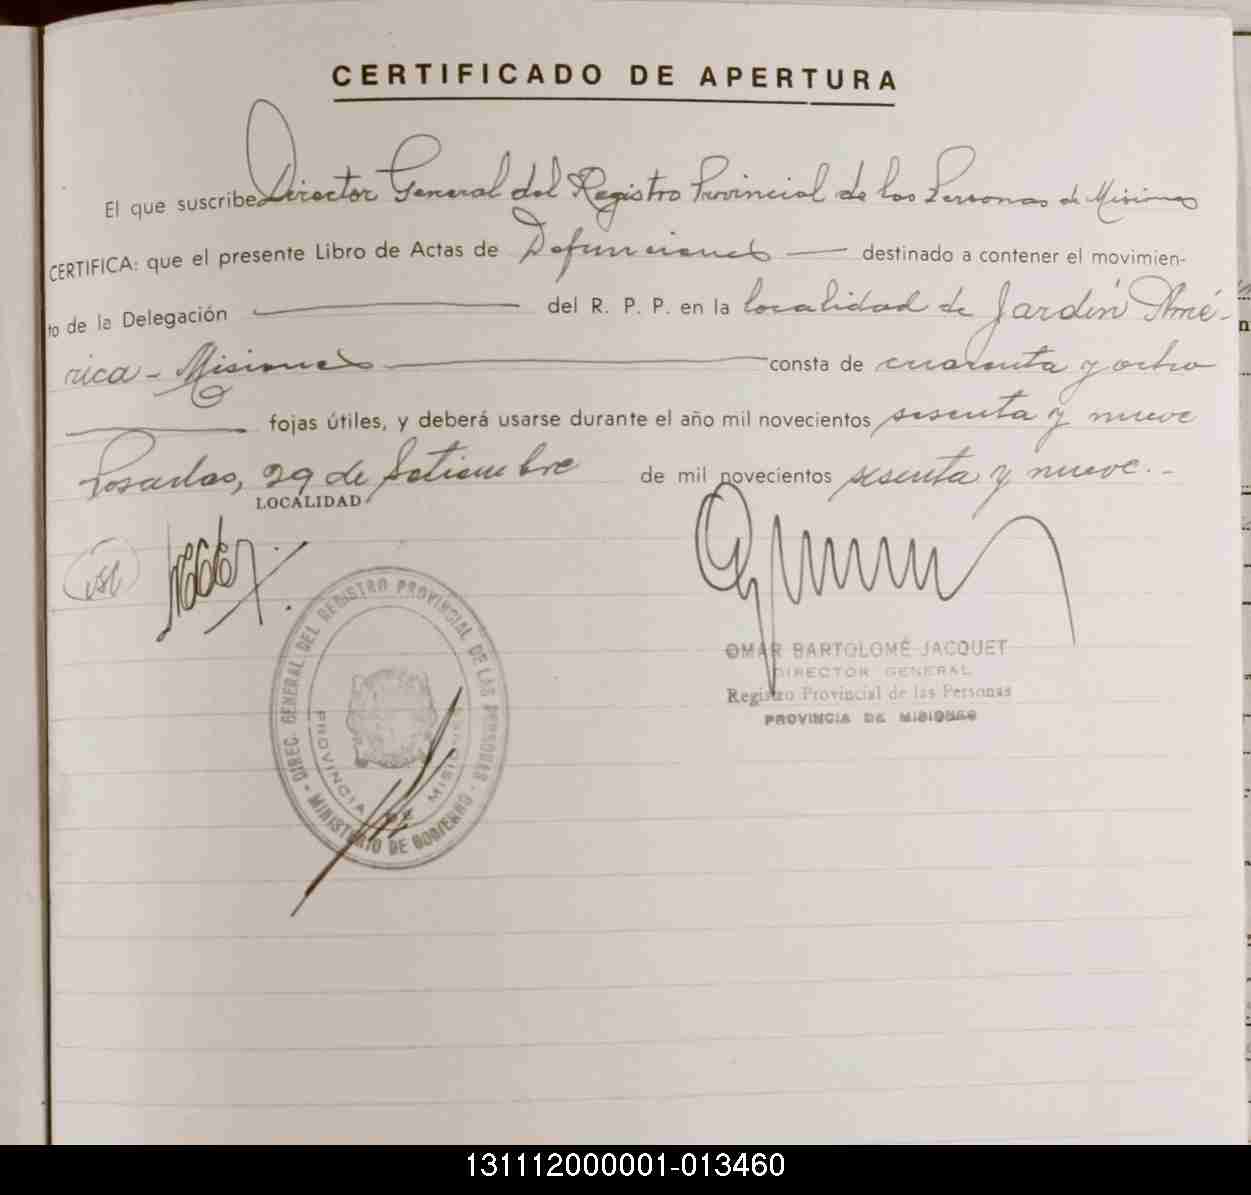 CERTIFICADO DE APERTURA
El que suscribe Director General del Registro Provincial de las Personas de Misiones
CERTIFICA: que el presente Libro de Actas de Defunciones — destinado a contener el movimien-
to de la Delegación — del R. P. P. en la localidad de Jardín Amé-
rica - Misiones — consta de cuarenta y ocho
— fojas útiles, y deberá usarse durante el año mil novecientos sesenta y nueve
Posadas, 29 de Setiembre de mil novecientos sesenta y nueve. -
LOCALIDAD
DIREC. GENERAL DEL REGISTRO PROVINCIAL DE LAS PERSONAS - MINISTERIO DE GOBIERNO -
PROVINCIA DE MISIONES
OMAR BARTOLOMÉ JACQUET
DIRECTOR GENERAL
Registro Provincial de las Personas
PROVINCIA DE MISIONES
131112000001-013460